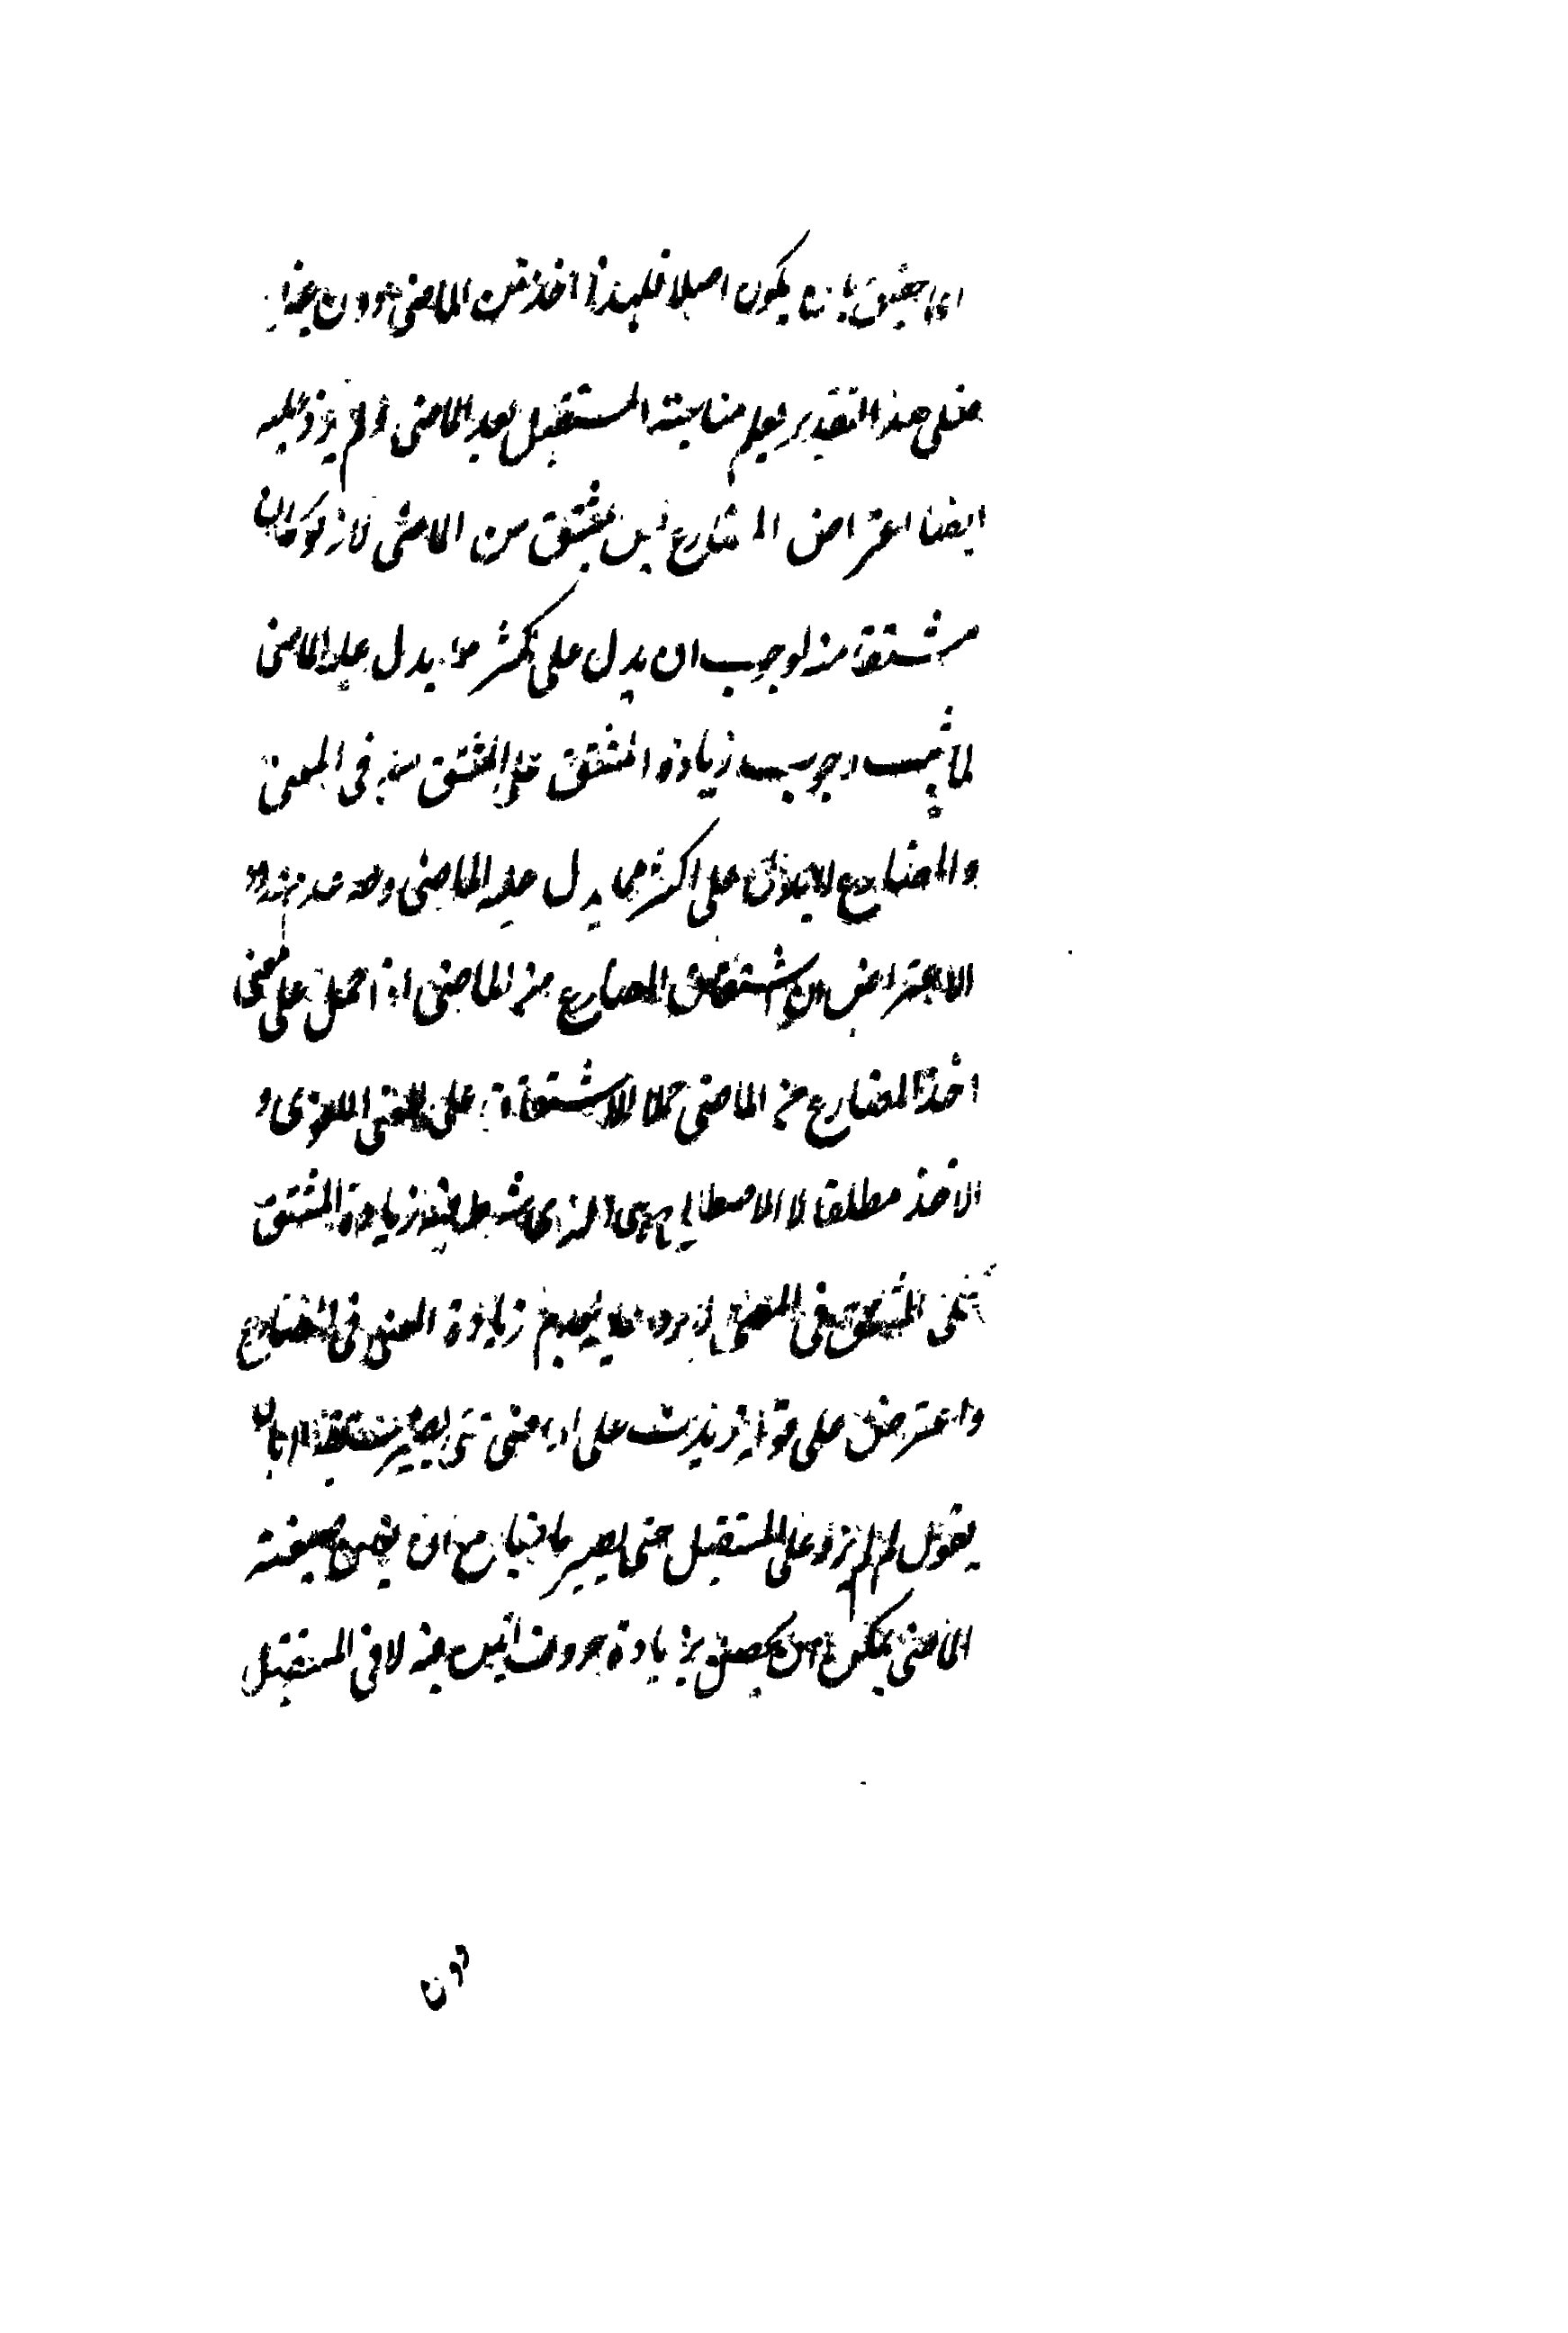 اى احقيق بان يكون اصلا فلهذا اخذ من الماضى دون غيره
فعلى هذا التقدير يعلم مناسبة المستقبل بعد الماضى ولم يرد عليه
ايضا اعتراض المضارع ليس بمشتق من الماضى لانه لو كان
مشتقا منه لوجب ان يدل على اكثر مما يدل عليه الماضى
لما ثبت وجوب زيادة المشتق على المشتق منه فى المعنى
والمضارع لا يدل على اكثر مما يدل عليه الماضى هذا
الاعتراض ان اشتقاق المضارع من الماضى اذا حمل على معنى
اخذ المضارع من الماضى حملا للاشتقاق على المعنى اللغوى و
الاخذ مطلقا لا الاصطلاحى الذى شرط فيه زيادة المشتق
على المشتق فى المعنى زيادة المعنى فى المضارع
واعترض على قوله زيدت على الماضى حتى يصير مستقبلا بان
يقول لم لم يزد على المستقبل حتى يصير ماضيا مع ان صيغة
الماضى يمكن ان يحصل بزيادة حروف اتين فيه لا فى المستقبل
دون